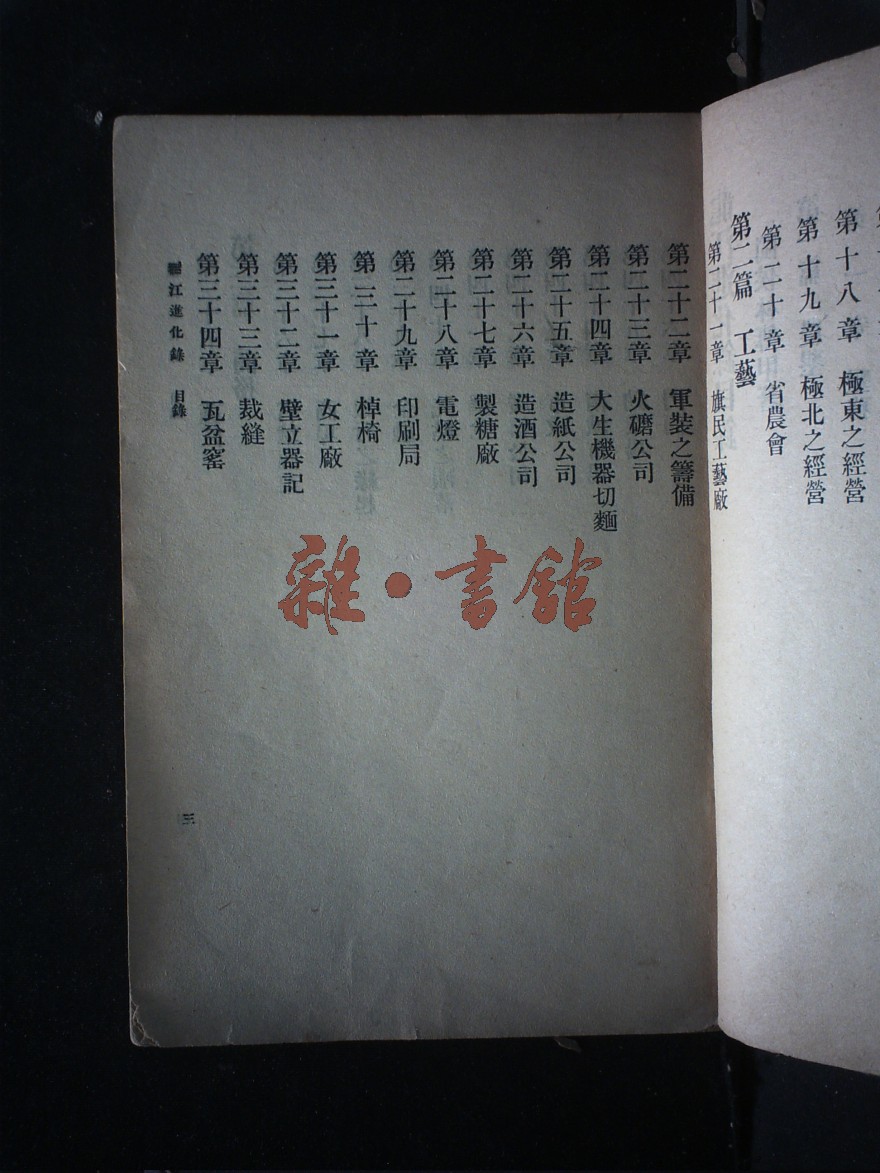 第十八章 極東之經營
第十九章 極北之經營
第二十章 省農會
第二篇 工藝
第二十一章 旗民工藝廠
第二十二章 軍裝之籌備
第二十三章 火磨公司
第二十四章 大生機器切麵
第二十五章 造紙公司
第二十六章 造酒公司
第二十七章 製糖廠
第二十八章 電燈
第二十九章 印刷局
第三十章 棹椅
第三十一章 女工廠
第三十二章 壁立器記
第三十三章 裁縫
第三十四章 瓦盆窰
江進化錄 目錄
三
雜·書館